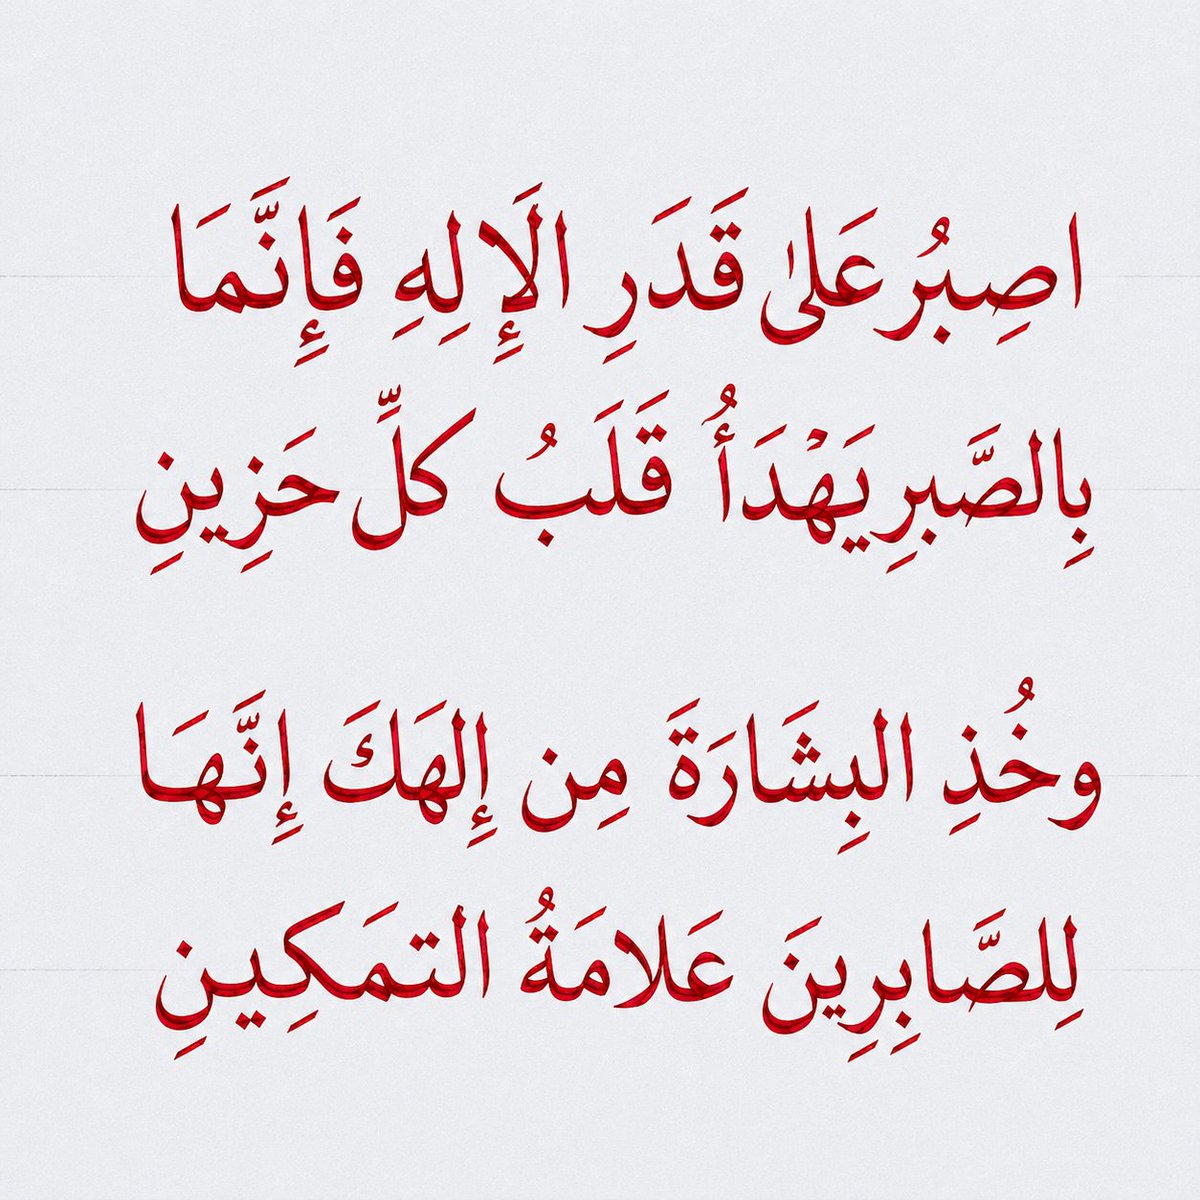 اصِبُر عَلىٰ قَدَرِ الَإِلِهِ فَإِنَّمَا
بِالصَّبرِ يَهْدَأُ قَلَبُ كلِّ حَزِينِ
وخُذِ البِشَارَةَ مِن إِلهَكَ إِنَّهَا
لِلصَّابِرِينَ عَلامَةُ التمَكِينِ